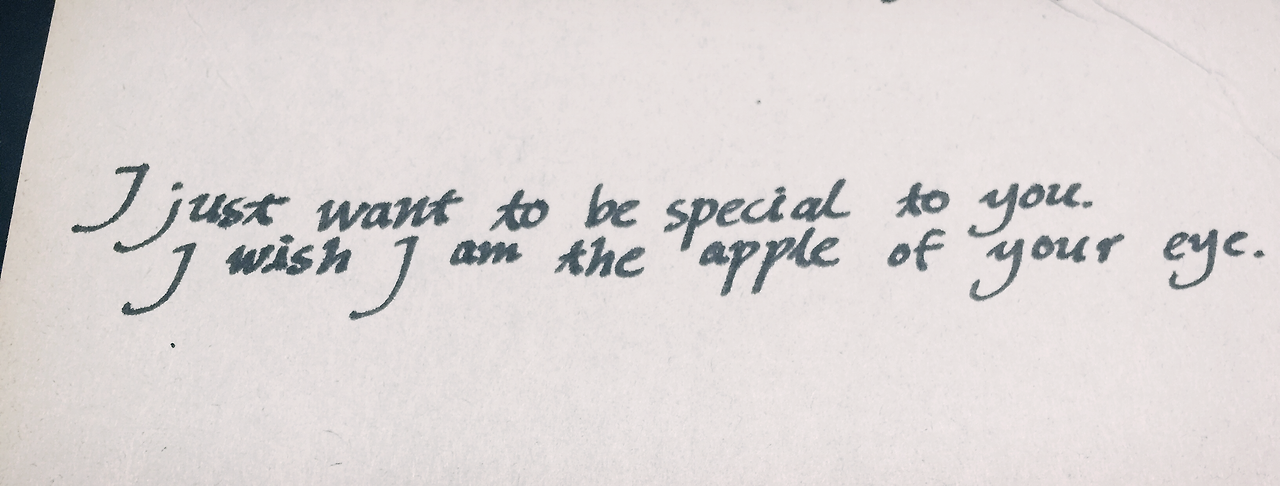 I just want to be special to you.
I wish I am the apple of your eye.